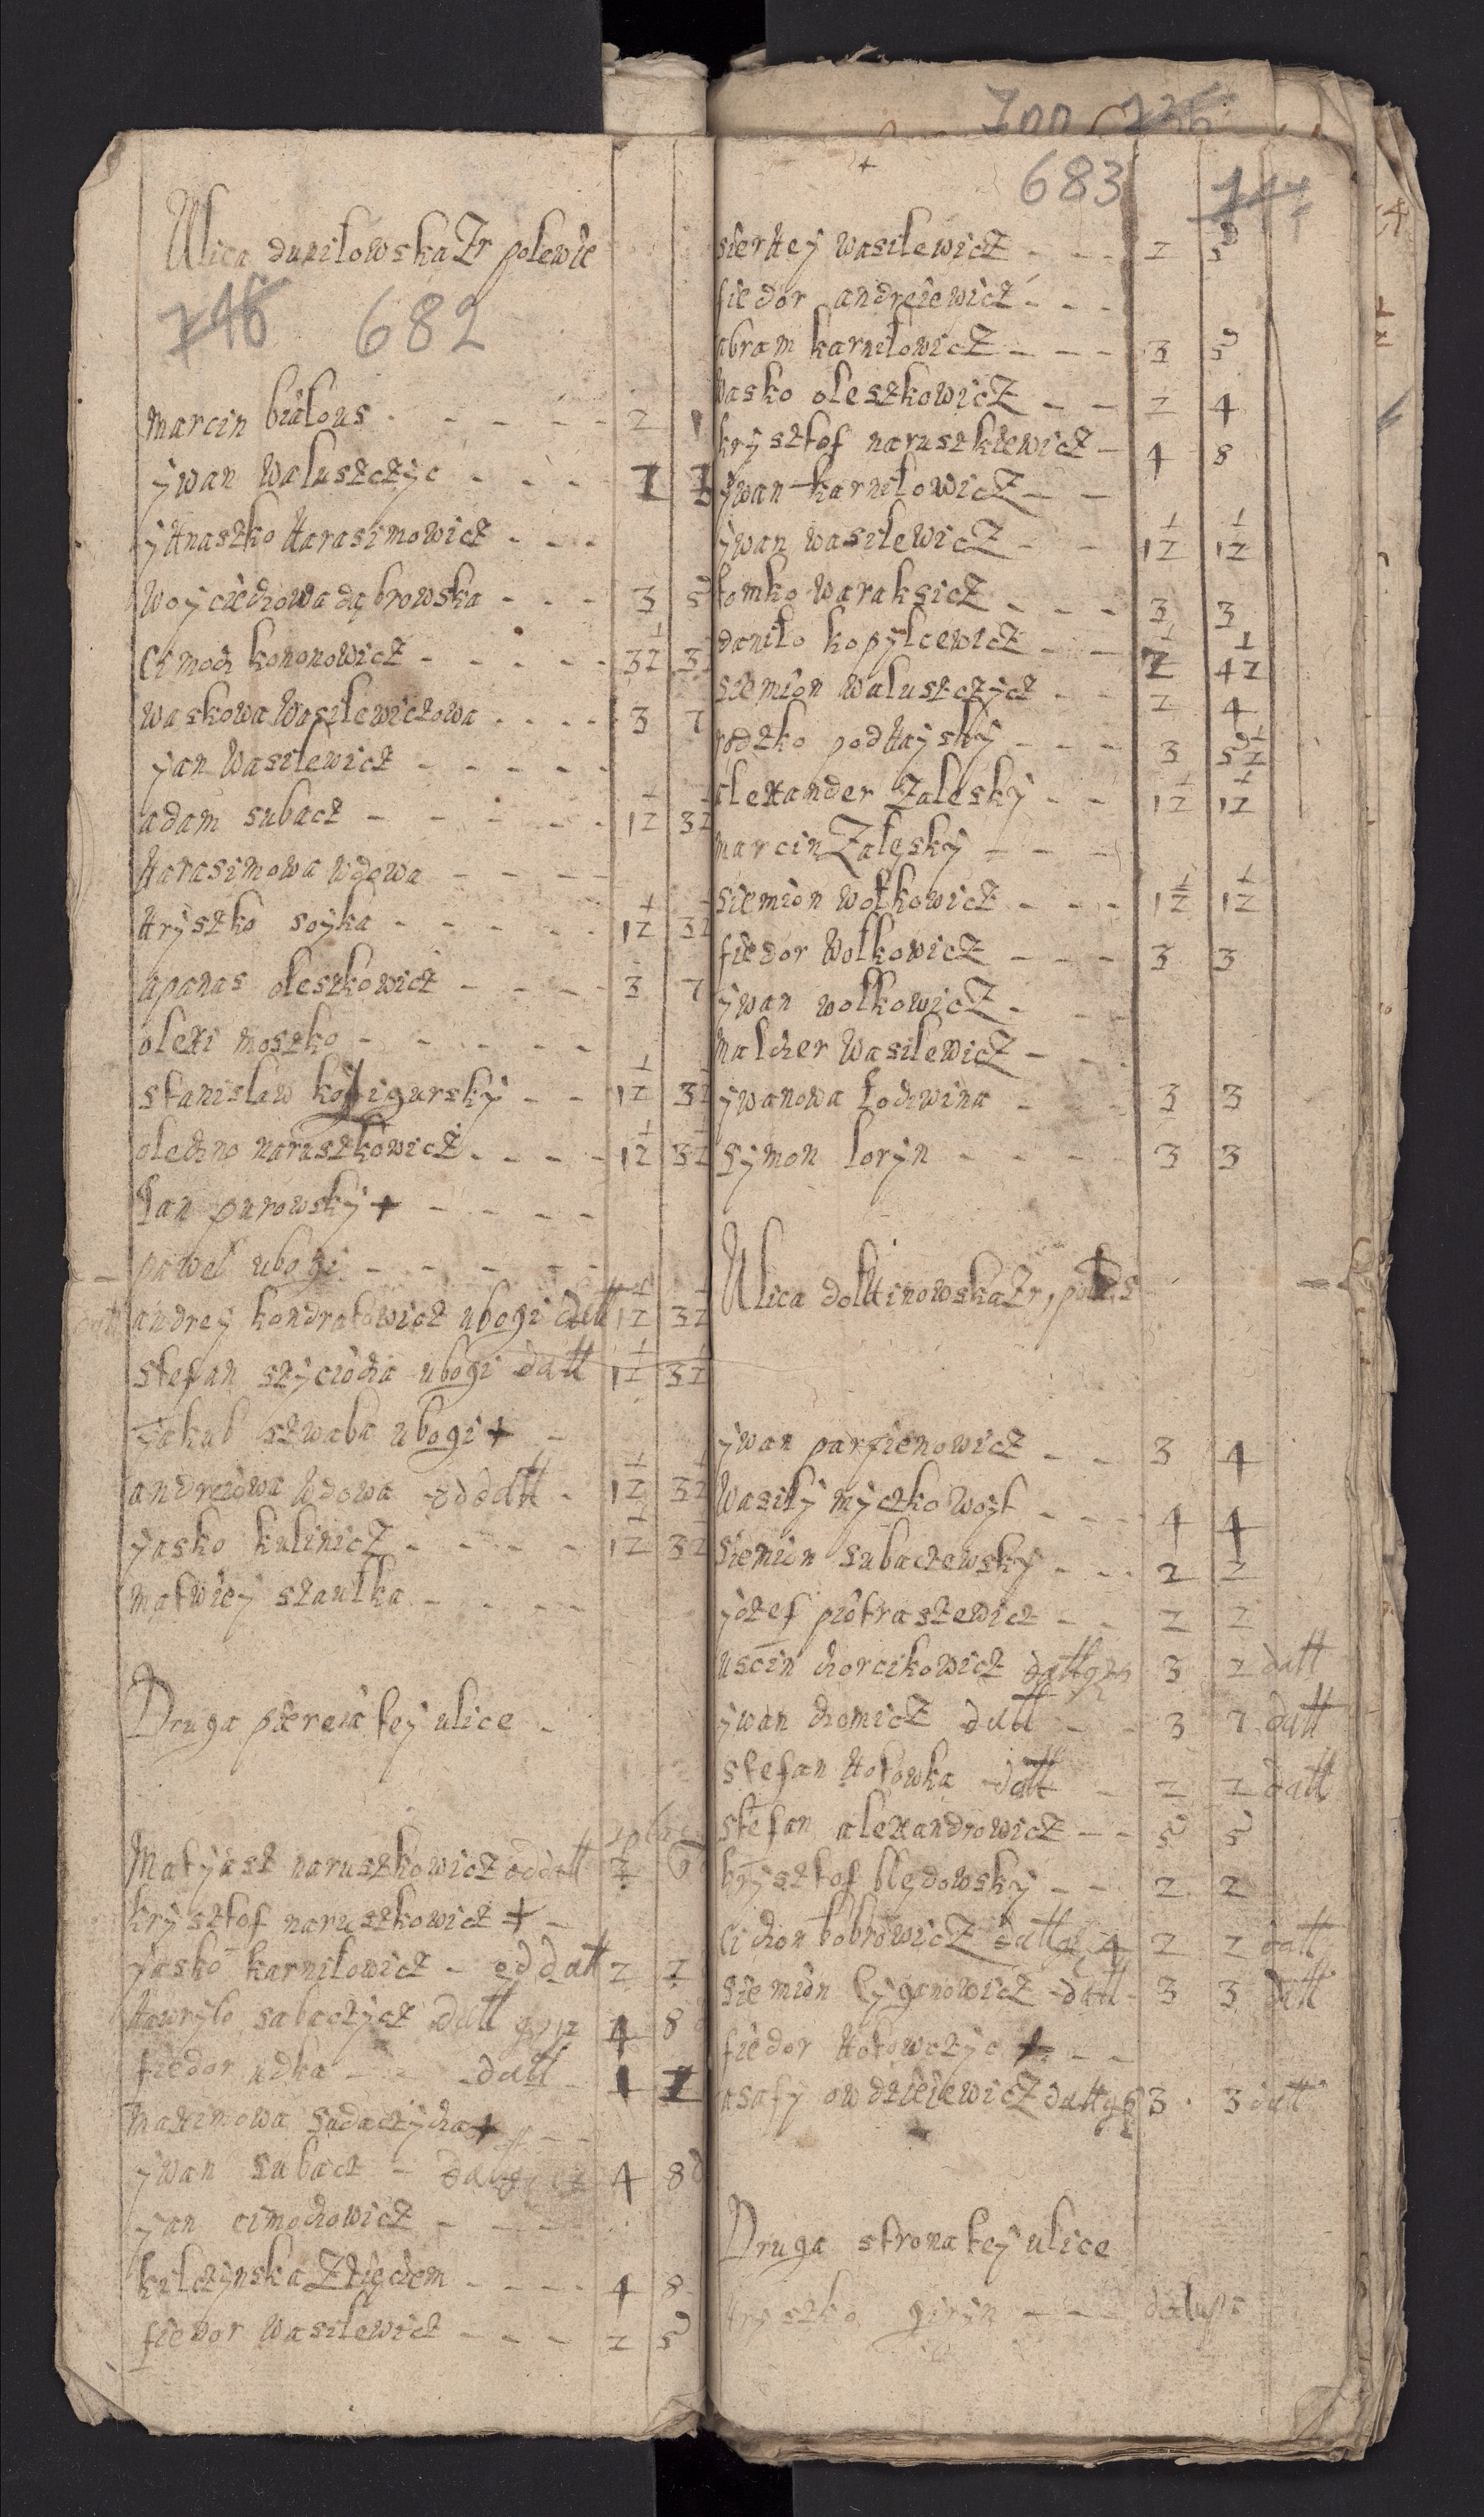 Ulica duniłowska Zr polewic
746 682
marcin białous - - - - - 2 1
ywan Waluszczyc - - - 1 1
yHnaszko Harasimowicz - - -
Woyciechowa dąbrowska - - - 3 5
Cimoch kononowicz - - - - - 3 1/2 3
Waskowa Wasilewiczowa - - - - 3 7
yan Wasilewicz - - - - -
adam subacz - - - - - - 1 1/2 3 1/2
Harasimowa wdowa - - - -
Hryszko soyka - - - - - 1 1/2 3 1/2
apanas oleszkowicz - - - - 3 7
olexi moszko - - - - - -
stanislaw - - 1 1/2 3 1/2
olechno naruszkowicz - - - - 1 1/2 3 1/2
Jan purowsky + - - - -
paweł ubogi - - - - -
andrey kondratowicz ubogi datt 1 1/2 3 1/2
stefan szyciocha ubogi datt 1 1/2 3 1/2
yakub szwaba ubogi + -
andreiowa wdowa oddatt - 1 1/2 3 1/2
yasko kulinicz - - - - 1 1/2 3 1/2
matwiey szaulka - - - -
Druga tey ulice -
Matyasz naruszkowicz oddatt 2
krysztof naruszkowicz + -
yasko karniłowicz - oddatt 2 2
Hawryło sabaczycz datt 4 8
fiedor udka - - - datt 1 1
Maximowa sudaczycha + - -
ywan subacz - 4 8
yan cimochowicz - - - -
kilczynska Zzięciem - - - - 4 8
fiedor Wasilewicz - - - 2 5
683 744
sierHey wasilewicz - - - 2 5
fiedor andreiewicz - - -
abram karniłowicz - - - 3 5
Wasko oleszkowicz - - 2 4
krysztof naruszkiewicz - 4 8
ywan karniłowicz - -
ywan wasilewicz - - 1 1/2 1 1/2
tomko waraksicz - - - 3 3
daniło kopylcewicz - - 2 1/2 4 1/2
siemion waluszczycz - - 2 4
rodzko podHaysky - - - 3 5 1/2
alexander Zalesky - - 1 1/2 1 1/2
marcin Zalesky - - -
siemion wołkowicz - - - 1 1/2 1 1/2
fiedor Wołkowicz - - - 3 3
ywan wołkowicz - - -
Malcher Wasilewicz - - -
ywanowa łodwina - - - 3 3
Symon loryn - - - - - 3 3
Ulica dolHinowska Zr,
ywan parfienowicz - - 3 4
Wasiły myczko woyt - - - 4 4
Siemion subaczewsky - - - 2 2
yozef piotraszewicz - - 2 2
uscin chorcikowicz datt 3 2 datt
ywan chomicz datt - - 3 7 datt
stefan Hołowka datt - 2 2 datt
stefan alexandrowicz - - 5 5
krysztof blędowsky - - 2 2
Cichon bobrowicz datt g 4 2 2 datt
siemion cyganowicz datt - 3 3 datt
fiedor Hołowczyc + - -
asafy owdzieiewicz datt g 6 3 3 datt
Druga strona tey ulice
Hryszko giryn - - -